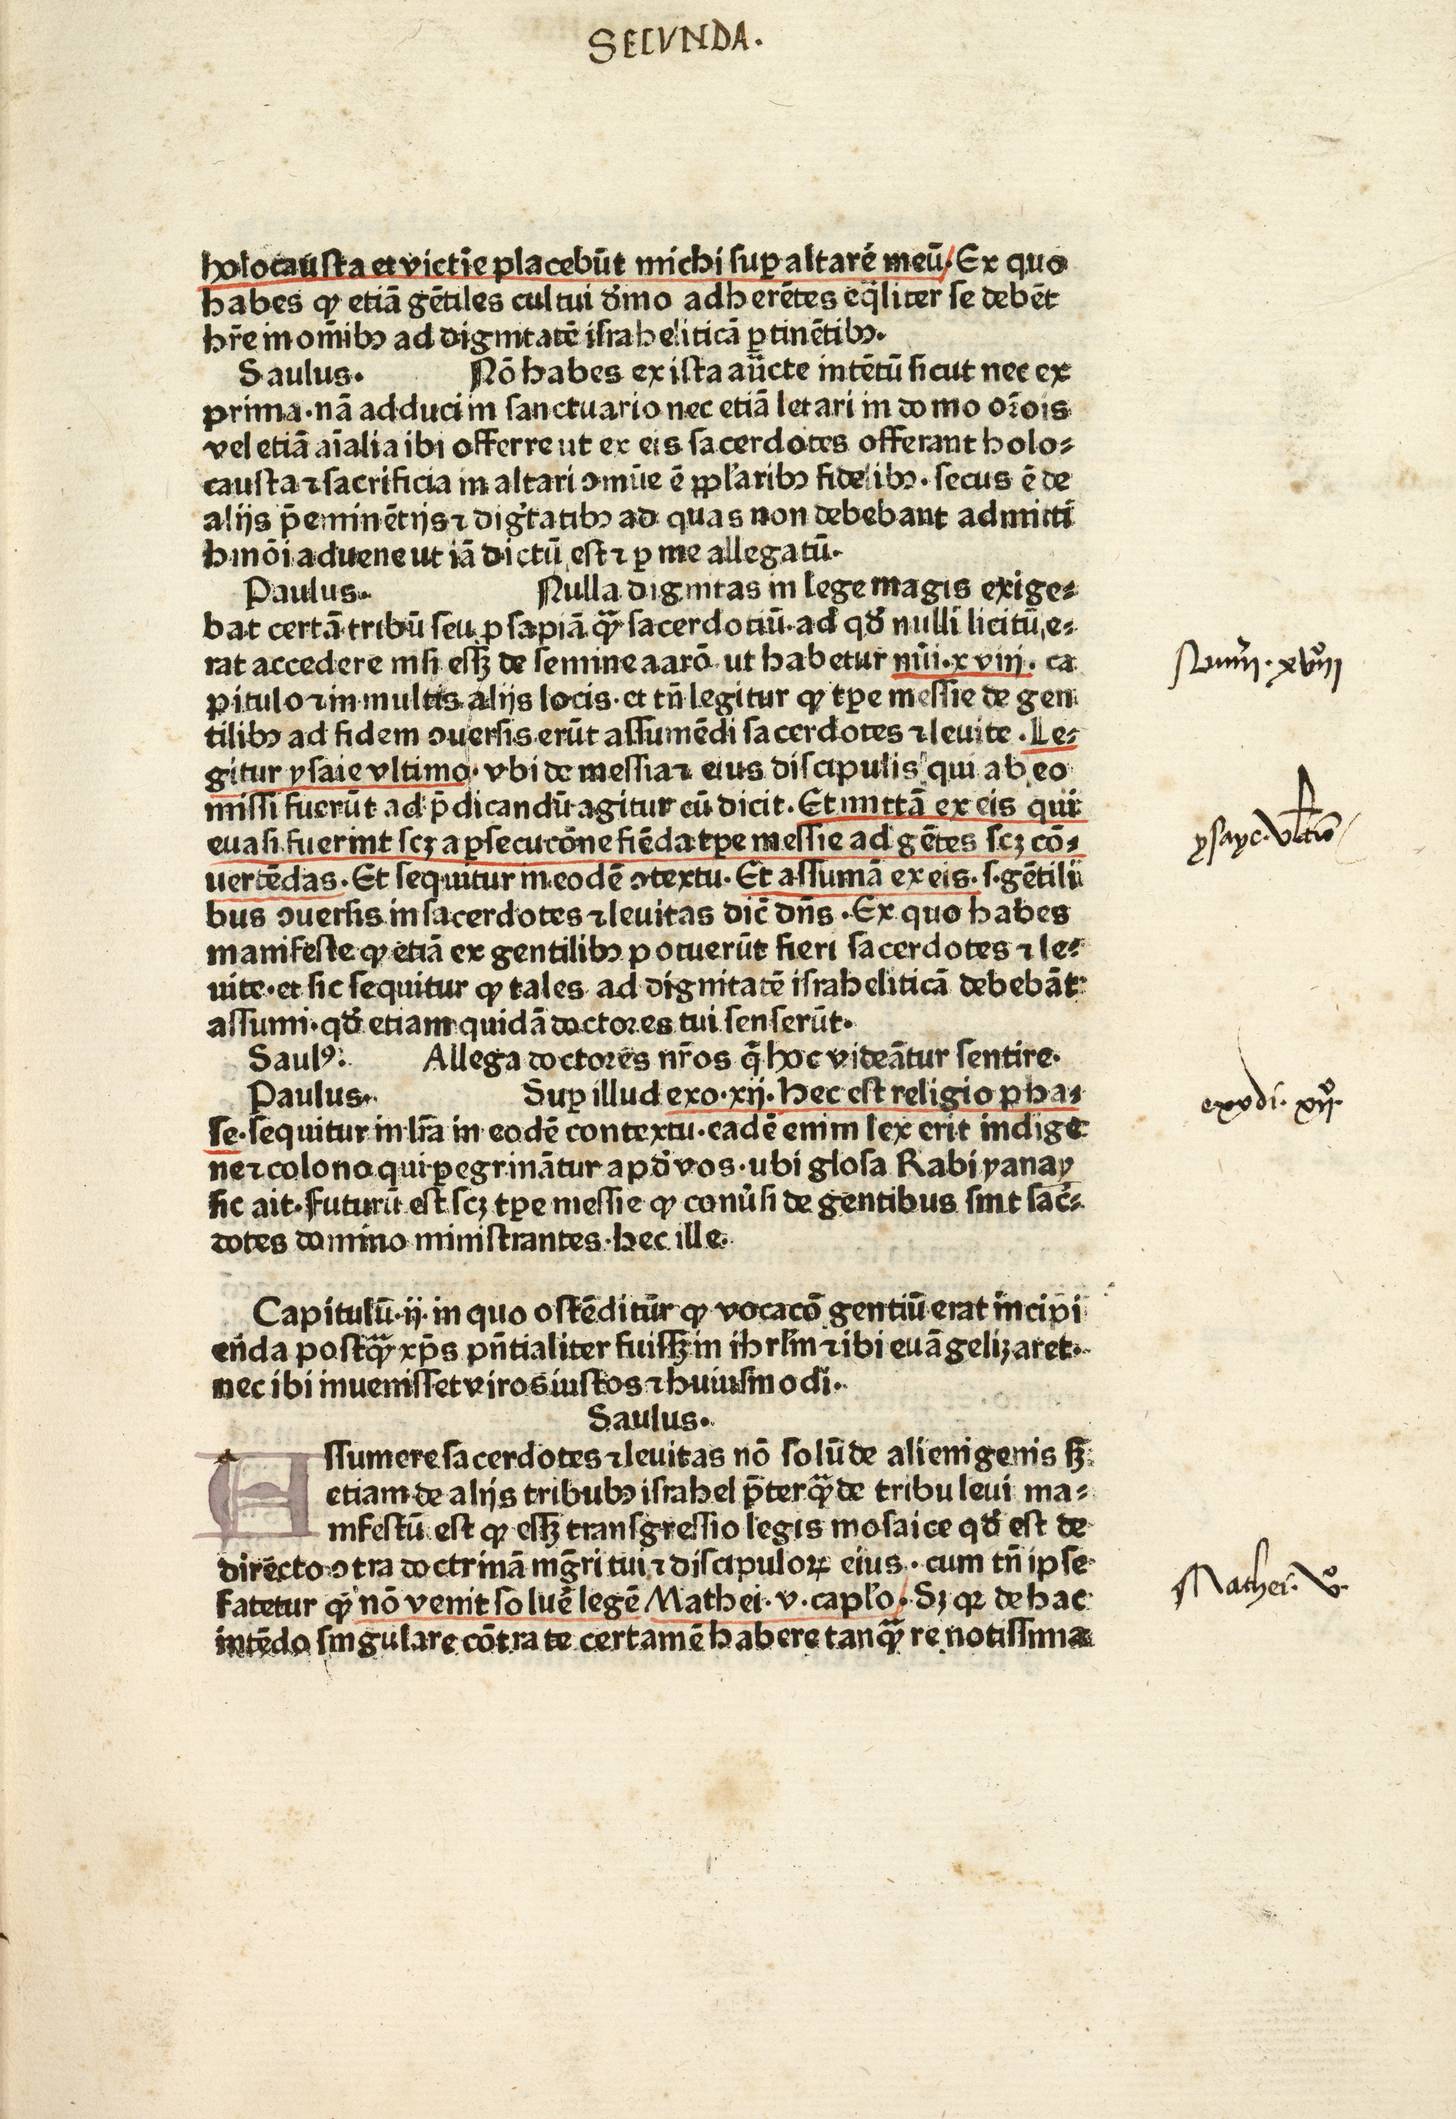 SECVNDA.
holocausta et victīe placebūt michi suꝑ altarē meū/ Ex quo
habes ꝙ etiā gētiles cultui dīno adherētes eq̄liter se debēt
hr̄e in om̄ibꝰ ad dignitatē israheliticā ꝑtinētibꝰ.
Saulus. Nō habes ex ista aūcte intētū sicut nec ex
prima. nā adduci in sanctuario nec etiā letari in domo or̄ois
vel etiā aīalia ibi offerre ut ex eis sacerdotes offerant holo⸗
causta ⁊ sacrificia in altari ꝯmūe ē pp̄l'aribꝰ fidelibꝰ. secus ē de
alijs p̄eminētijs ⁊ dig'tatibꝰ ad quas non debebant admitti
hmōi aduene ut iā dictū est ⁊ ꝑ me allegatū.
Paulus. Nulla dignitas in lege magis exige⸗
bat certā tribū seu ꝓsapiā ꝙ̄ sacerdotiū. ad qd' nulli licitū e⸗
rat accedere nisi eēt de semine aarō ut habetur nūi. xviij. ca
pitulo ⁊ in multis alijs locis. et tn̄ legitur ꝙ tꝑe messie de gen
tilibꝰ ad fidem ꝯuersis erūt assumēdi sacerdotes ⁊ leuite. Le⸗
gitur ysaie vltimo. vbi de messia ⁊ eius discipulis qui ab eo
missi fuerūt ad p̄dicandū agitur cū dicit. Et mittā ex eis qui
euasi fuerint scꝫ a ꝑsecucōne fiēda tꝑe messie ad gētes scꝫ cō⸗
uertēdas. Et sequitur in eodē ꝯtextu. Et assumā ex eis. s. gētili
bus ꝯuersis in sacerdotes ⁊ leuitas dic̄ dn̄s. Ex quo habes
manifeste ꝙ etiā ex gentilibꝰ potuerūt fieri sacerdotes ⁊ le⸗
uite. et sic sequitur ꝙ tales ad dignitatē israheliticā debebāt
assumi. qd' etiam quidā doctores tui senserūt.
Saulꝰ. Allega doctores nr̄os q̄ hoc videātur sentire.
Paulus. Suꝑ illud exo. xij. hec est religio pha⸗
se. sequitur in lr̄a in eodē contextu. eadē enim lex erit indige
ne ⁊ colono qui ꝑegrinātur apd' vos. ubi glosa Rabi yanay
sic ait. futurū est scꝫ tꝑe messie ꝙ conūsi de gentibus sint sac̄⸗
dotes domino ministrantes. hec ille.
Capitulū. ij. in quo ostēditur ꝙ vocacō gentiū erat incipi
enda postꝙ̄ xp̄s pn̄tialiter fuisꝫ in ihrl̄m ⁊ ibi euāgelizaret.
nec ibi inuenisset viros iustos ⁊ huiusmodi.
Saulus.
Assumere sacerdotes ⁊ leuitas nō solū de alienigenis sꝫ
etiam de alijs tribubꝰ israhel p̄terꝙ̄ de tribu leui ma⸗
nifestū est ꝙ esꝫ transgressio legis mosaice qd' est de
directo ꝯtra doctrinā mḡri tui ⁊ discipuloꝝ eius. cum tn̄ ipse
fatetur ꝙ nō venit soluē legē Mathei. v. capl'o/. Sꝫ qꝛ de hac
intēdo singulare cōtra te certamē habere tanꝙ̄ re notissima
Numeri. xviij
ysaye. Vltimo
exodi. xij.
Mathei. V.